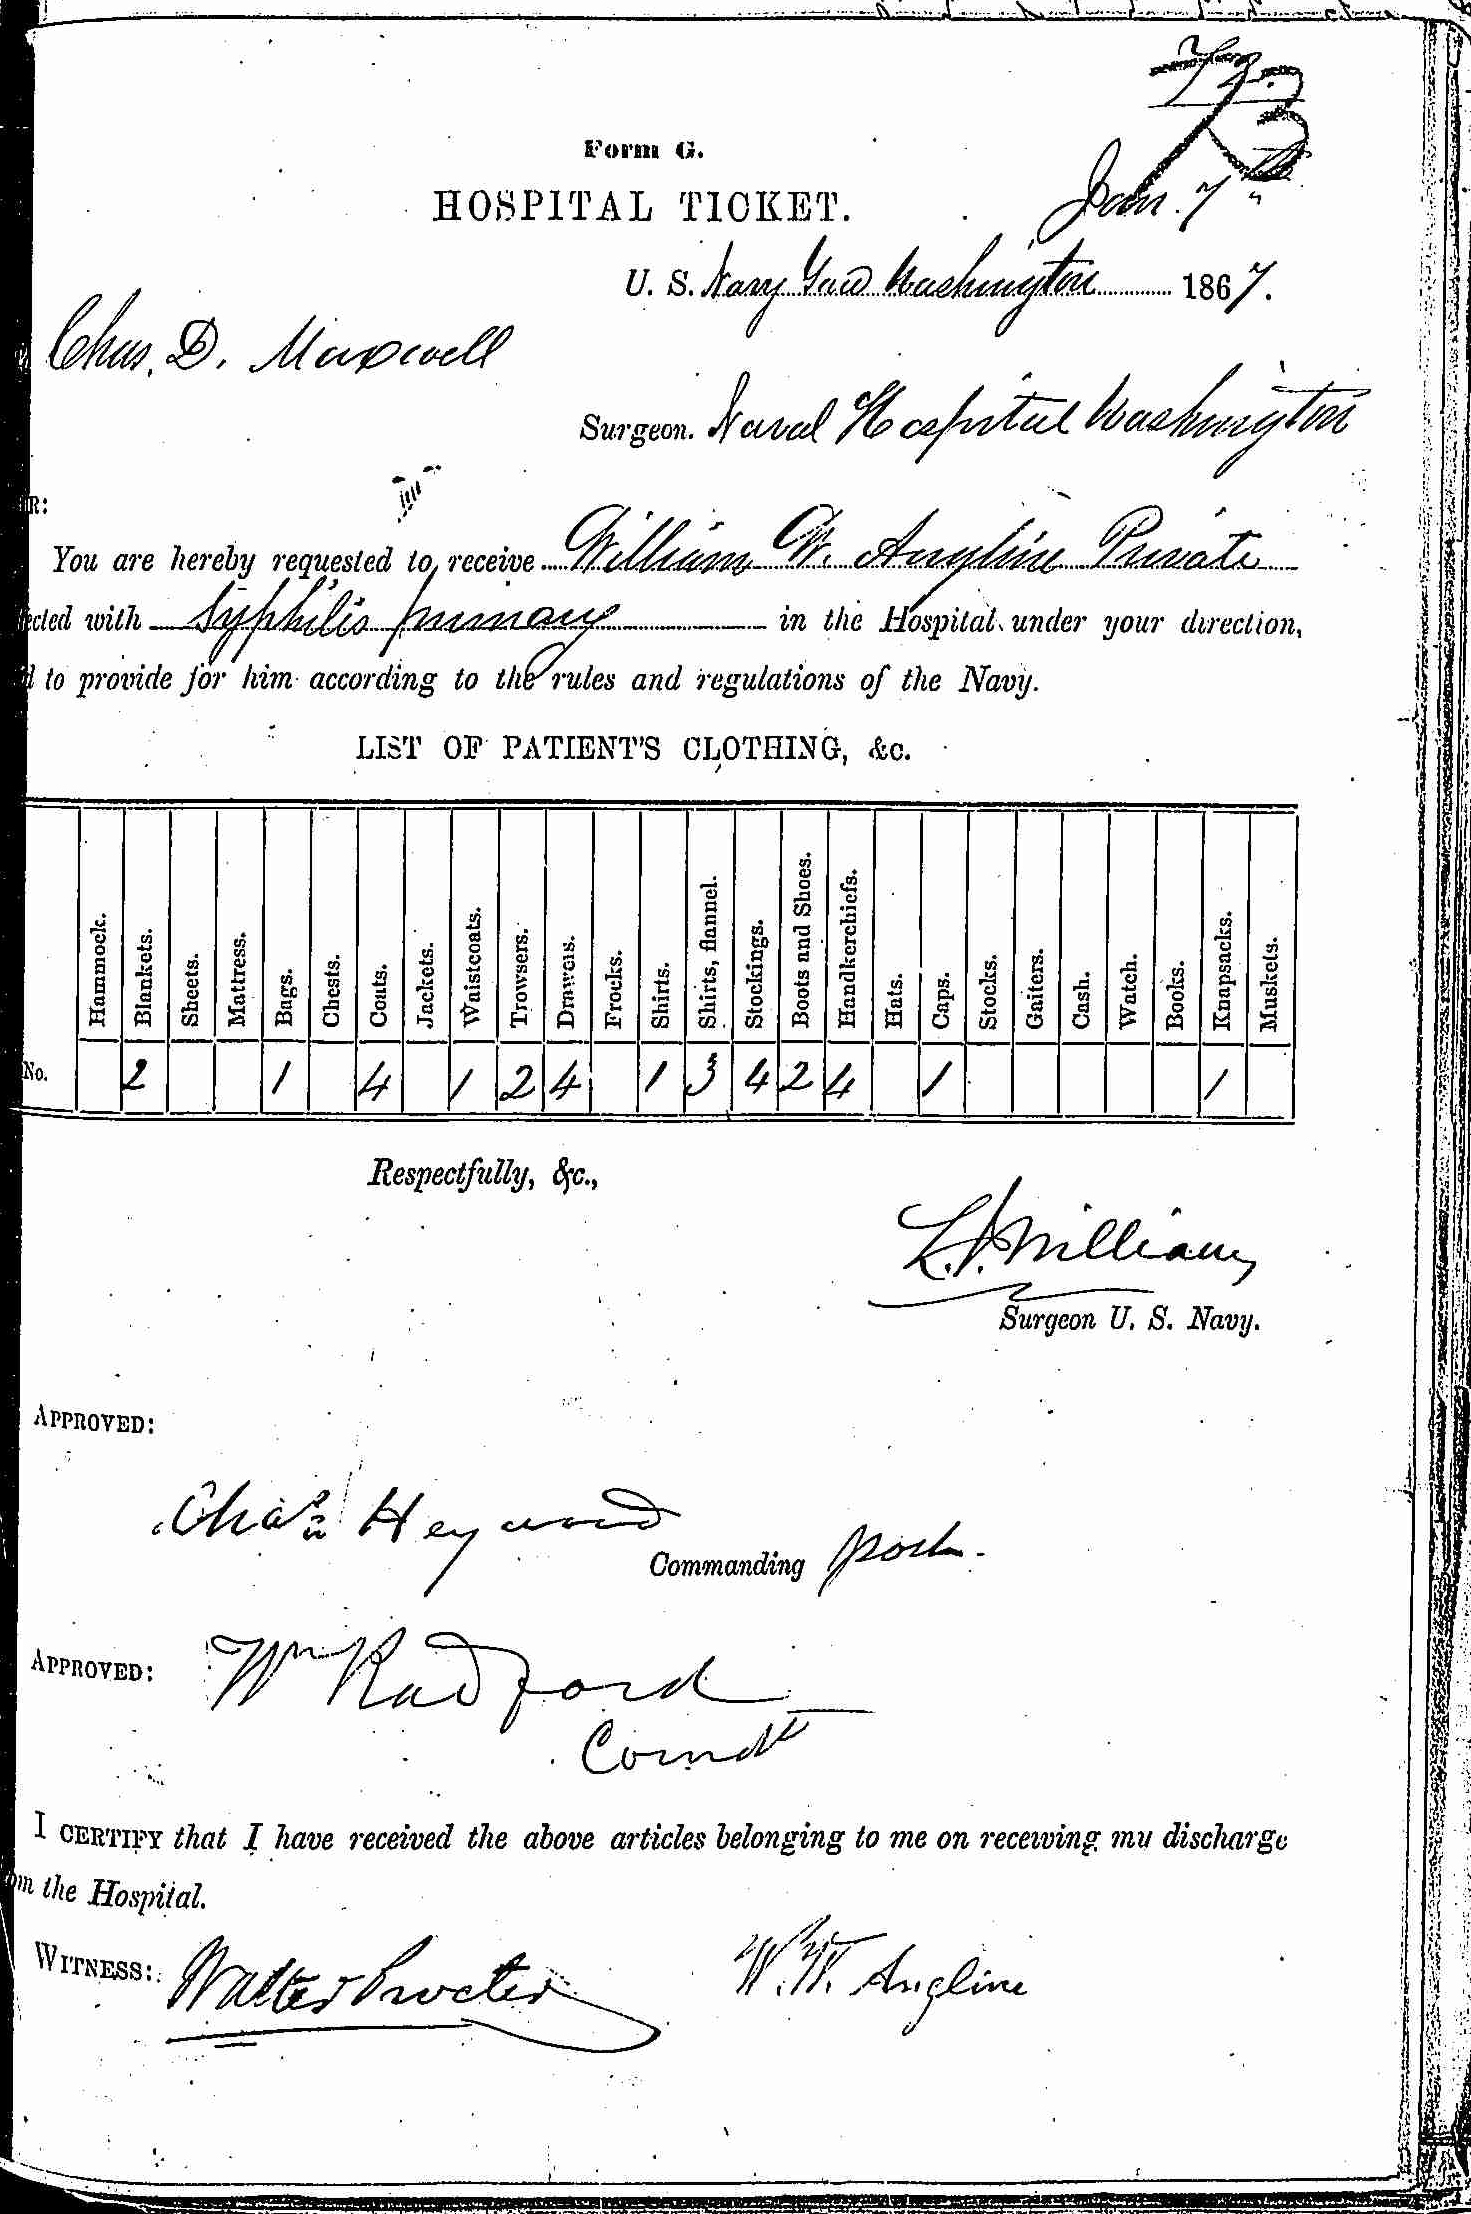 Form G.
HOSPITAL TICKET.
Jan. 7"
U. S. Navy Yard Washington 1867.
Chas. D. Maxwell
Surgeon. Naval Hospital Washington
R:
You are hereby requested to receive William W. Angline Private
ected with Syphilis primary in the Hospital under your direction,
d to provide for him according to the rules and regulations of the Navy.
LIST OF PATIENT'S CLOTHING, &c.
Hammock. Blankets. Sheets. Mattress. Bags. Chests. Coats. Jackets. Waistcoats. Trowsers. Drawers. Frocks. Shirts. Shirts, flannel. Stockings. Boots and Shoes. Handkerchiefs. Hats. Caps. Stocks. Gaiters. Cash. Watch. Books. Knapsacks. Muskets.
No. 2 1 4 1 2 4 1 3 4 2 4 1 1
Respectfully, &c.,
L. J. Williams
Surgeon U. S. Navy.
APPROVED:
Chas. Heywood
Commanding Post.
APPROVED: Wm Radford
Comdt
I CERTIFY that I have received the above articles belonging to me on receiving my discharge
om the Hospital.
WITNESS: Walter Procter W. W. Angline